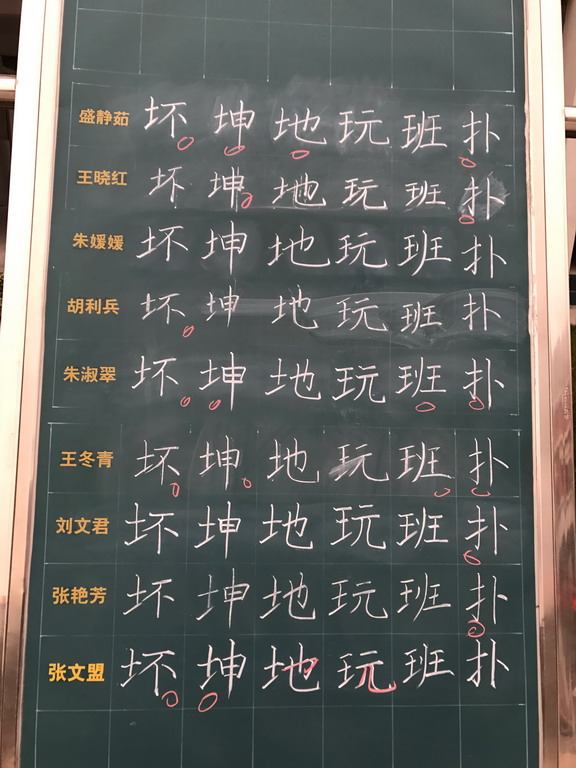 盛静茹 坏 坤 地 玩 班 扑
王晓红 坏 坤 地 玩 班 扑
朱媛媛 坏 坤 地 玩 班 扑
胡利兵 坏 坤 地 玩 班 扑
朱淑翠 坏 坤 地 玩 班 扑
王冬青 坏 坤 地 玩 班 扑
刘文君 坏 坤 地 玩 班 扑
张艳芳 坏 坤 地 玩 班 扑
张文盟 坏 坤 地 玩 班 扑